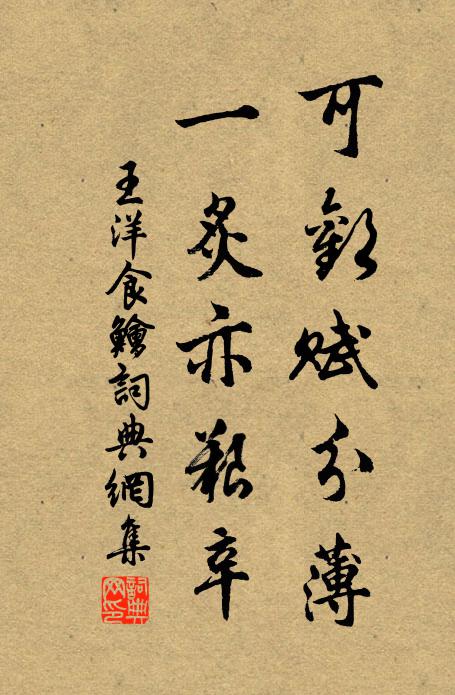 可歎賦分薄
一炙亦艱辛
王洋食鱠詞典網集
詞典網印